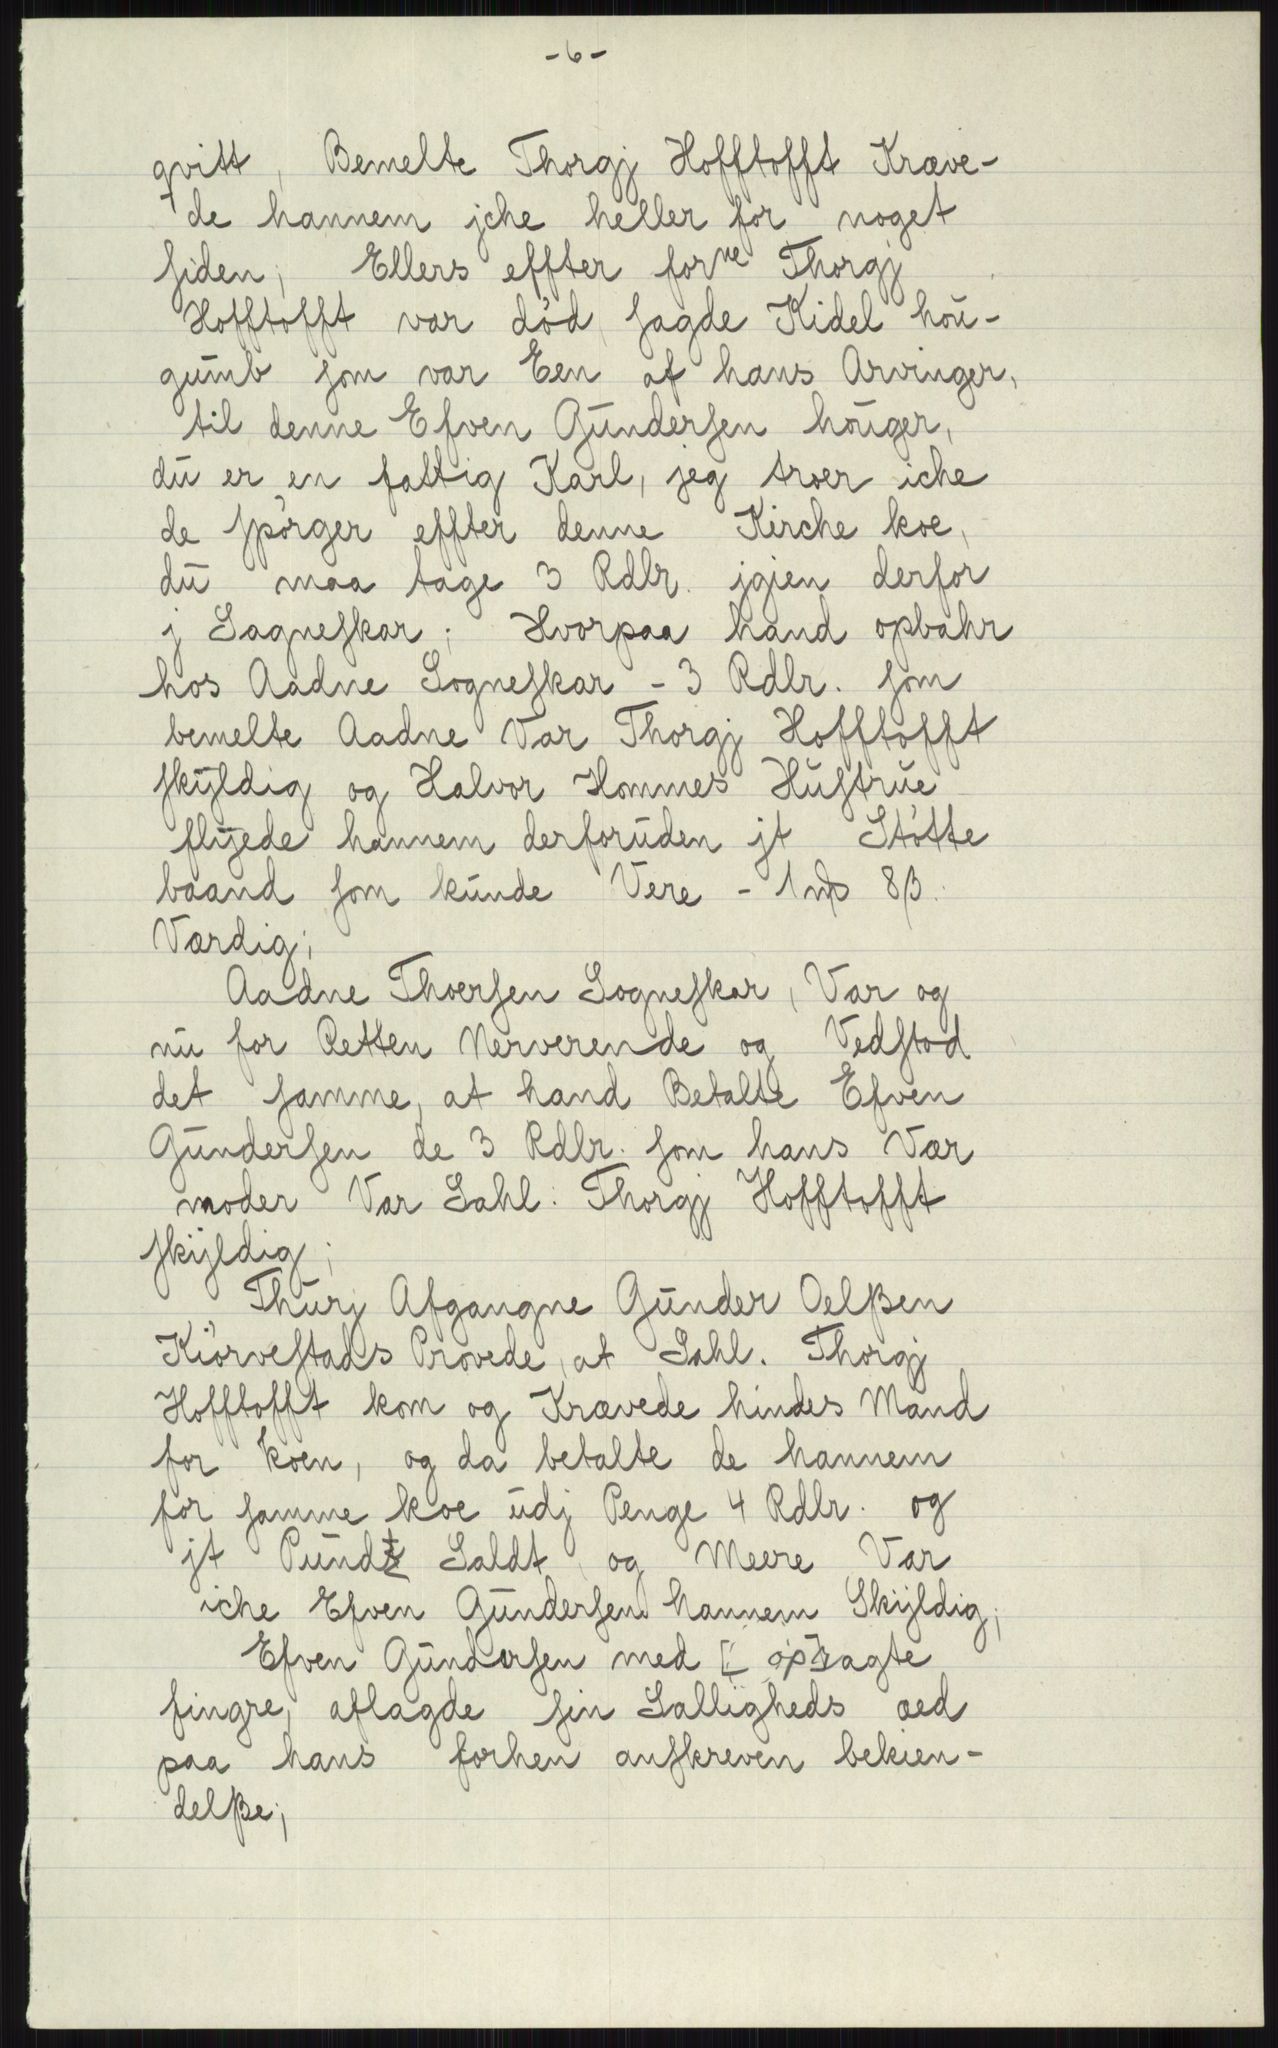 -6-
qvitt, Bemelte Thorgj Hofftofft Kræve-
de hannem jche heller for noget
siden; Ellers effter forne Thorgj
Hofftofft var død, sagde Kidel hou-
gumb som var Een af hans Arvinger,
til denne Efven Gundersen houger,
du er en fattig Karl, jeg troer iche
de spørger effter denne Kirche koe,
du maa tage 3 Rdlr. jgien derfor
j Sagneskar; Hvorpaa hand opbahr
hos Aadne Sogneskar - 3 Rdlr. som
bemelte Aadne Var Thorgj Hofftofft
skyldig og Halvor Hommes Hustrue
flyede hannem derforuden jt Støtte
baand som kunde Vere - 1 mſ 8 β.
Værdig;
Aadne Thoersen Sogneskar, Var og
nu for Retten Nerverende og Vedstod
det samme, at hand Betalte Efven
Gundersen de 3 Rdlr. som hans Vær
moder Var Sahl: Thorgj Hofftofft
skyldig;
Thurj Afgangne Gunder Oelßen
Kiørvestads Provede, at Sahl. Thorgj
Hofftofft kom og Krævede hindes Mand
for koen, og da betalte de hannem
for samme koe udj Penge 4 Rdlr. og
jt Pund Saldt, og Meere Var
iche Efven Gundersen hannem Skyldig;
Efven Gundersen med [: op:]ragte
fingre, aflagde sin Salligheds æd
paa hans forhen anskreven bekien-
delße;